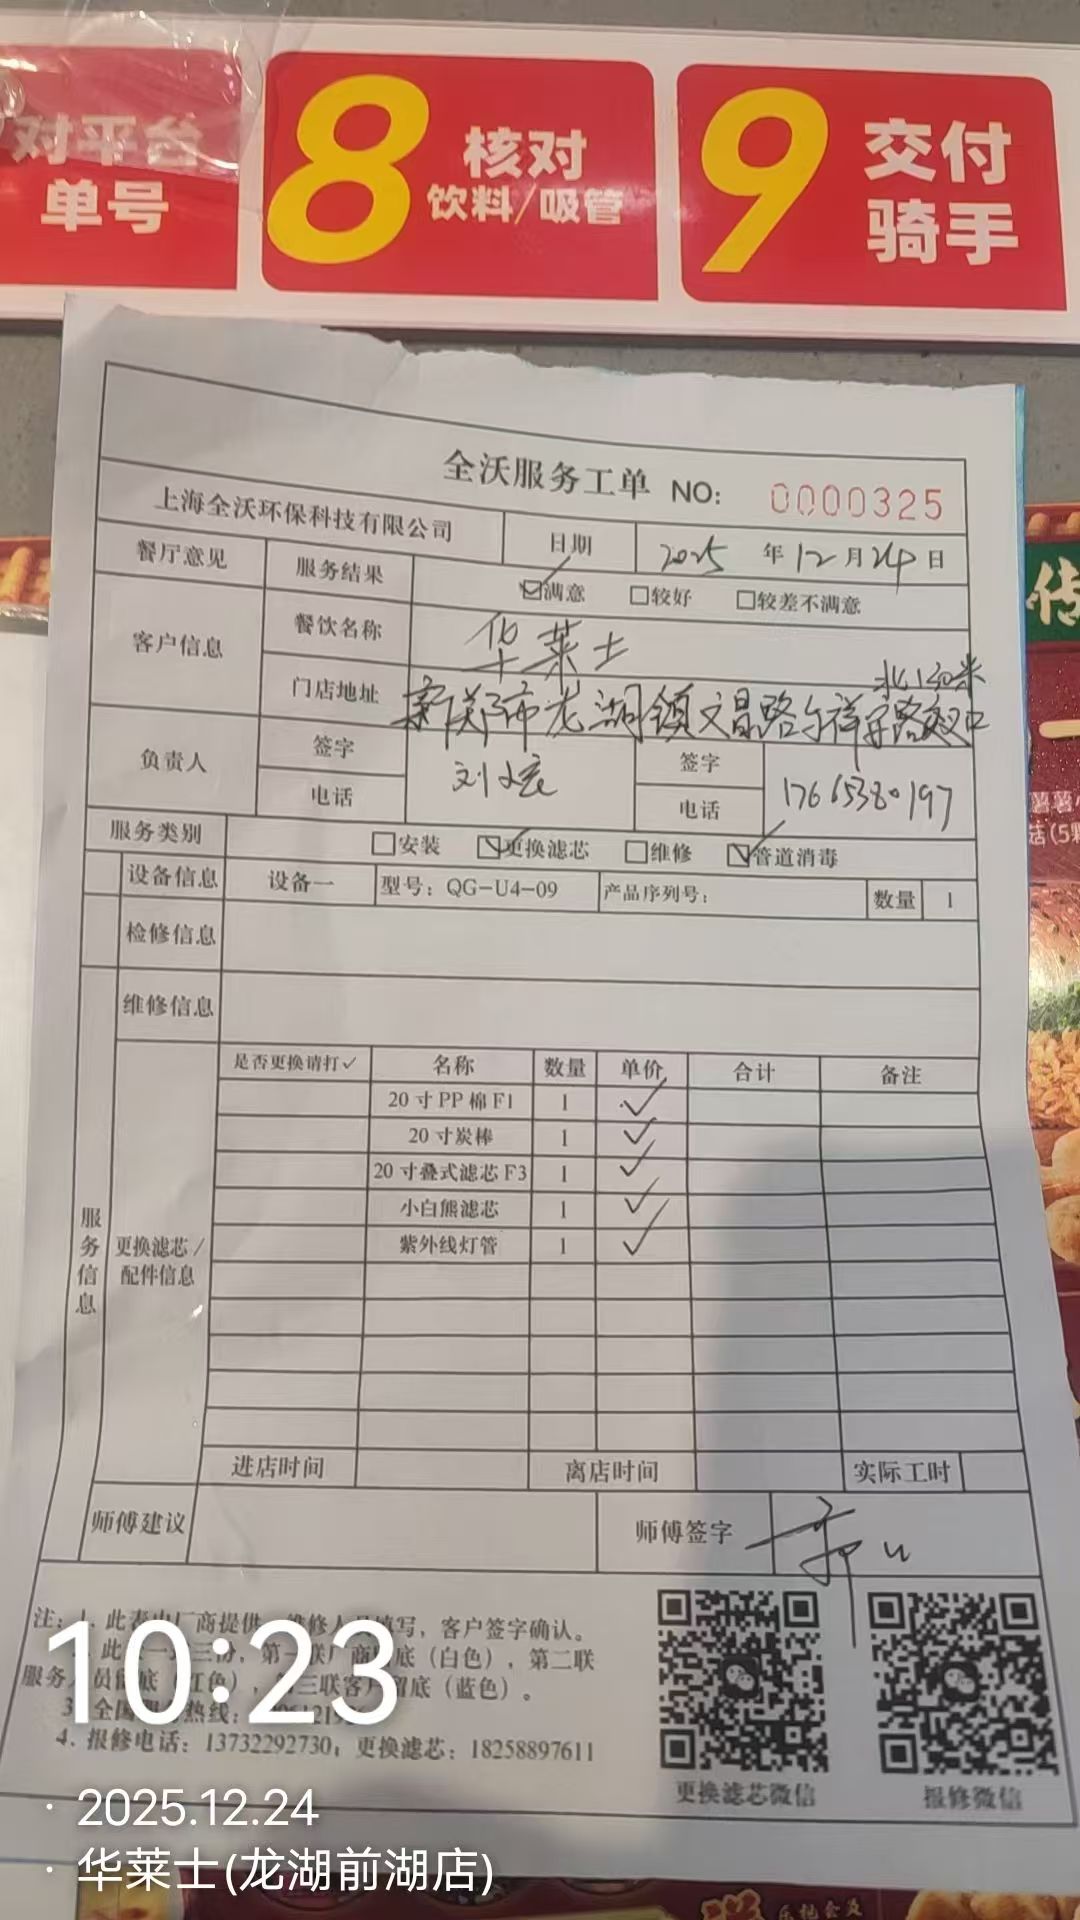 对平台
单号
8
核对
饮料/吸管
9
交付
骑手
全沃服务工单 NO: 0000325
上海全沃环保科技有限公司 日期 2025 年 12 月 24 日
餐厅意见 服务结果 ☑满意 □较好 □较差不满意
客户信息 餐饮名称 华莱士
北130米
门店地址 新郑市龙湖镇文昌路与祥安路交叉口
负责人 签字 刘 签字
电话 电话 17665380197
服务类别 □安装 ☑更换滤芯 □维修 ☑管道消毒
设备信息 设备一 型号：QG-U4-09 产品序列号： 数量 1
检修信息
维修信息
是否更换请打✓ 名称 数量 单价 合计 备注
20寸PP棉F1 1 ✓
20寸炭棒 1 ✓
20寸叠式滤芯F3 1 ✓
小白熊滤芯 1 ✓
紫外线灯管 1 ✓
服务信息
更换滤芯/
配件信息
进店时间 离店时间 实际工时
师傅建议 师傅签字
注：1. 此表由厂商提供，维修人员填写，客户签字确认。
此 一 三份，第一联厂商留底（白色），第二联
服务 员留底（红色），第三联客户留底（蓝色）。
3. 全国 热线：
4. 报修电话：13732292730，更换滤芯：18258897611
更换滤芯微信
报修微信
10:23
· 2025.12.24
· 华莱士(龙湖前湖店)
传